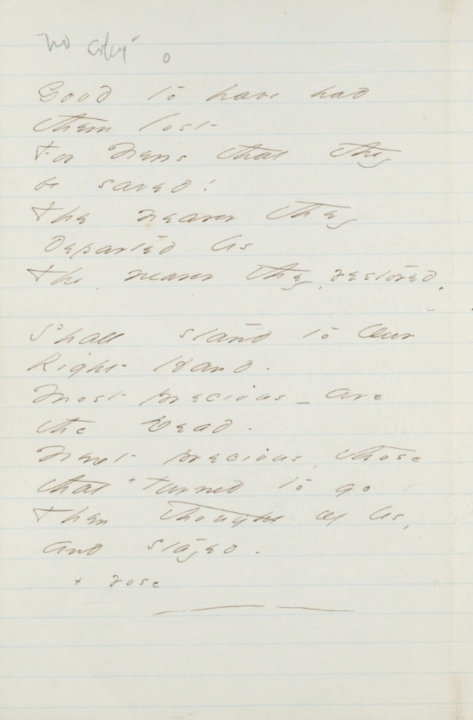 no copy
Good to have had
them lost
For News that they
be saved!
The nearer they
Departed Us
The nearer they, restored,
Shall stand to Our
Right Hand.
Most Precious – are
the Dead.
Next precious, those
that + turned to go
Then thought of Us,
and stayed.
+ rose